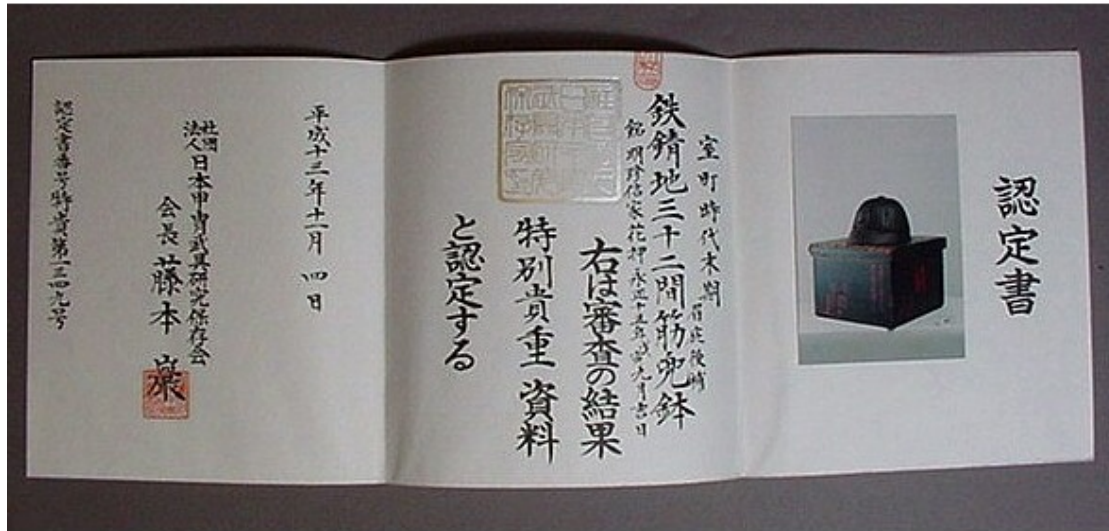 認定書
室町時代末期 眉庇後補
鉄錆地三十二間筋兜鉢
銘 明珍信家花押 永正十五年 九月吉日
右は審査の結果
特別貴重 資料
と認定する
平成十三年十一月 四日
社団法人 日本甲冑武具研究保存会
会長 藤本 巖
認定書番号特貴第一三四九号